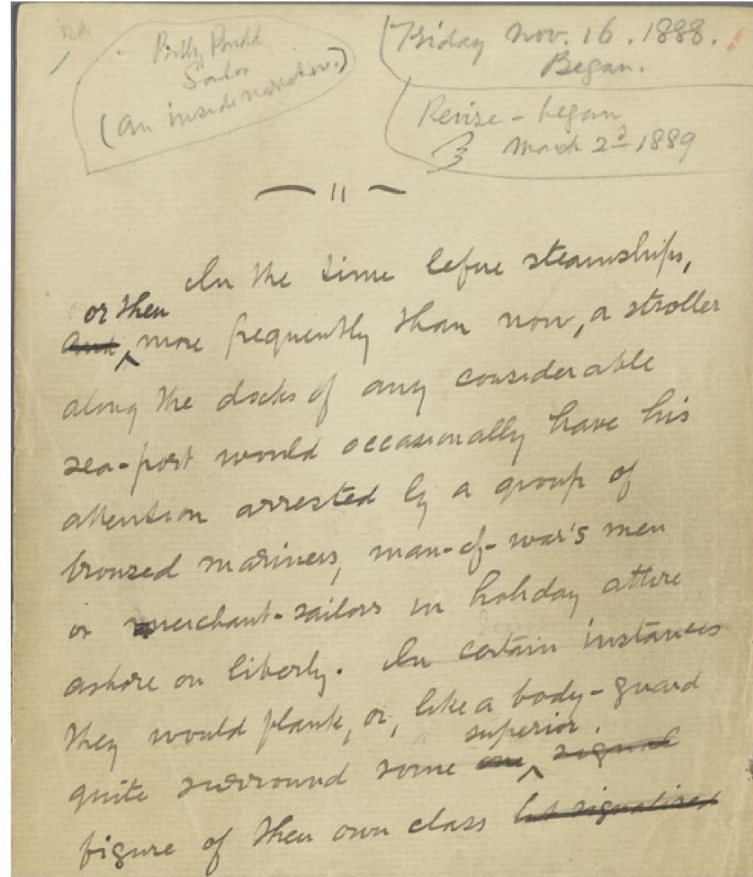 Billy Budd
Sailor
(An inside narrative.)
Friday Nov. 16. 1888.
Began.
Revise - began
March 2d 1889
In the time before steamships,
or then
more frequently than now, a stroller
along the docks of any considerable
sea-port would occasionally have his
attention arrested by a group of
bronzed mariners, man-of-war's men
or merchant-sailors in holiday attire
ashore on liberty. In certain instances
they would flank, or, like a body-guard
superior
quite surround some one signal
figure of their own class signalized